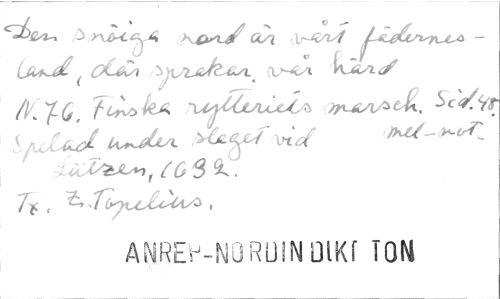 Den snöiga nord är vårt fädernes-
land, där sprakar vår härd
N.76. Finska rytteriets marsch. Sid.48.
Spelad under slaget vid mel-not-
Lützen, 1632.
Tx. Z. Topelius.
ANREP-NORDIN DIKT TON